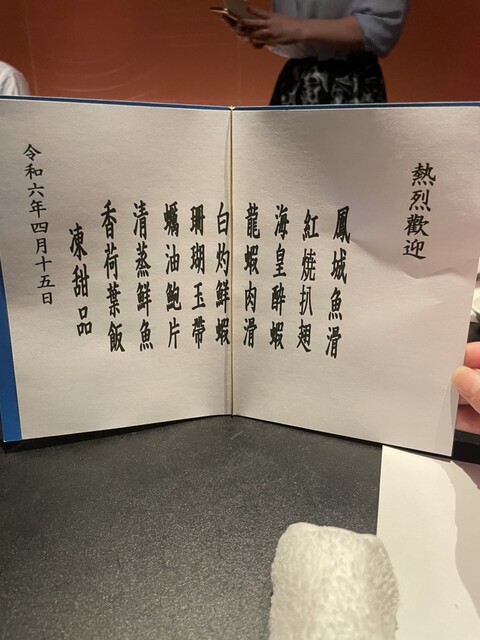 熱烈歡迎
鳳城魚滑
紅燒扒翅
海皇酔蝦
龍蝦肉滑
白灼鮮蝦
珊瑚玉帶
蠣油鮑片
清蒸鮮魚
香荷葉飯
凍甜品
令和六年四月十五日